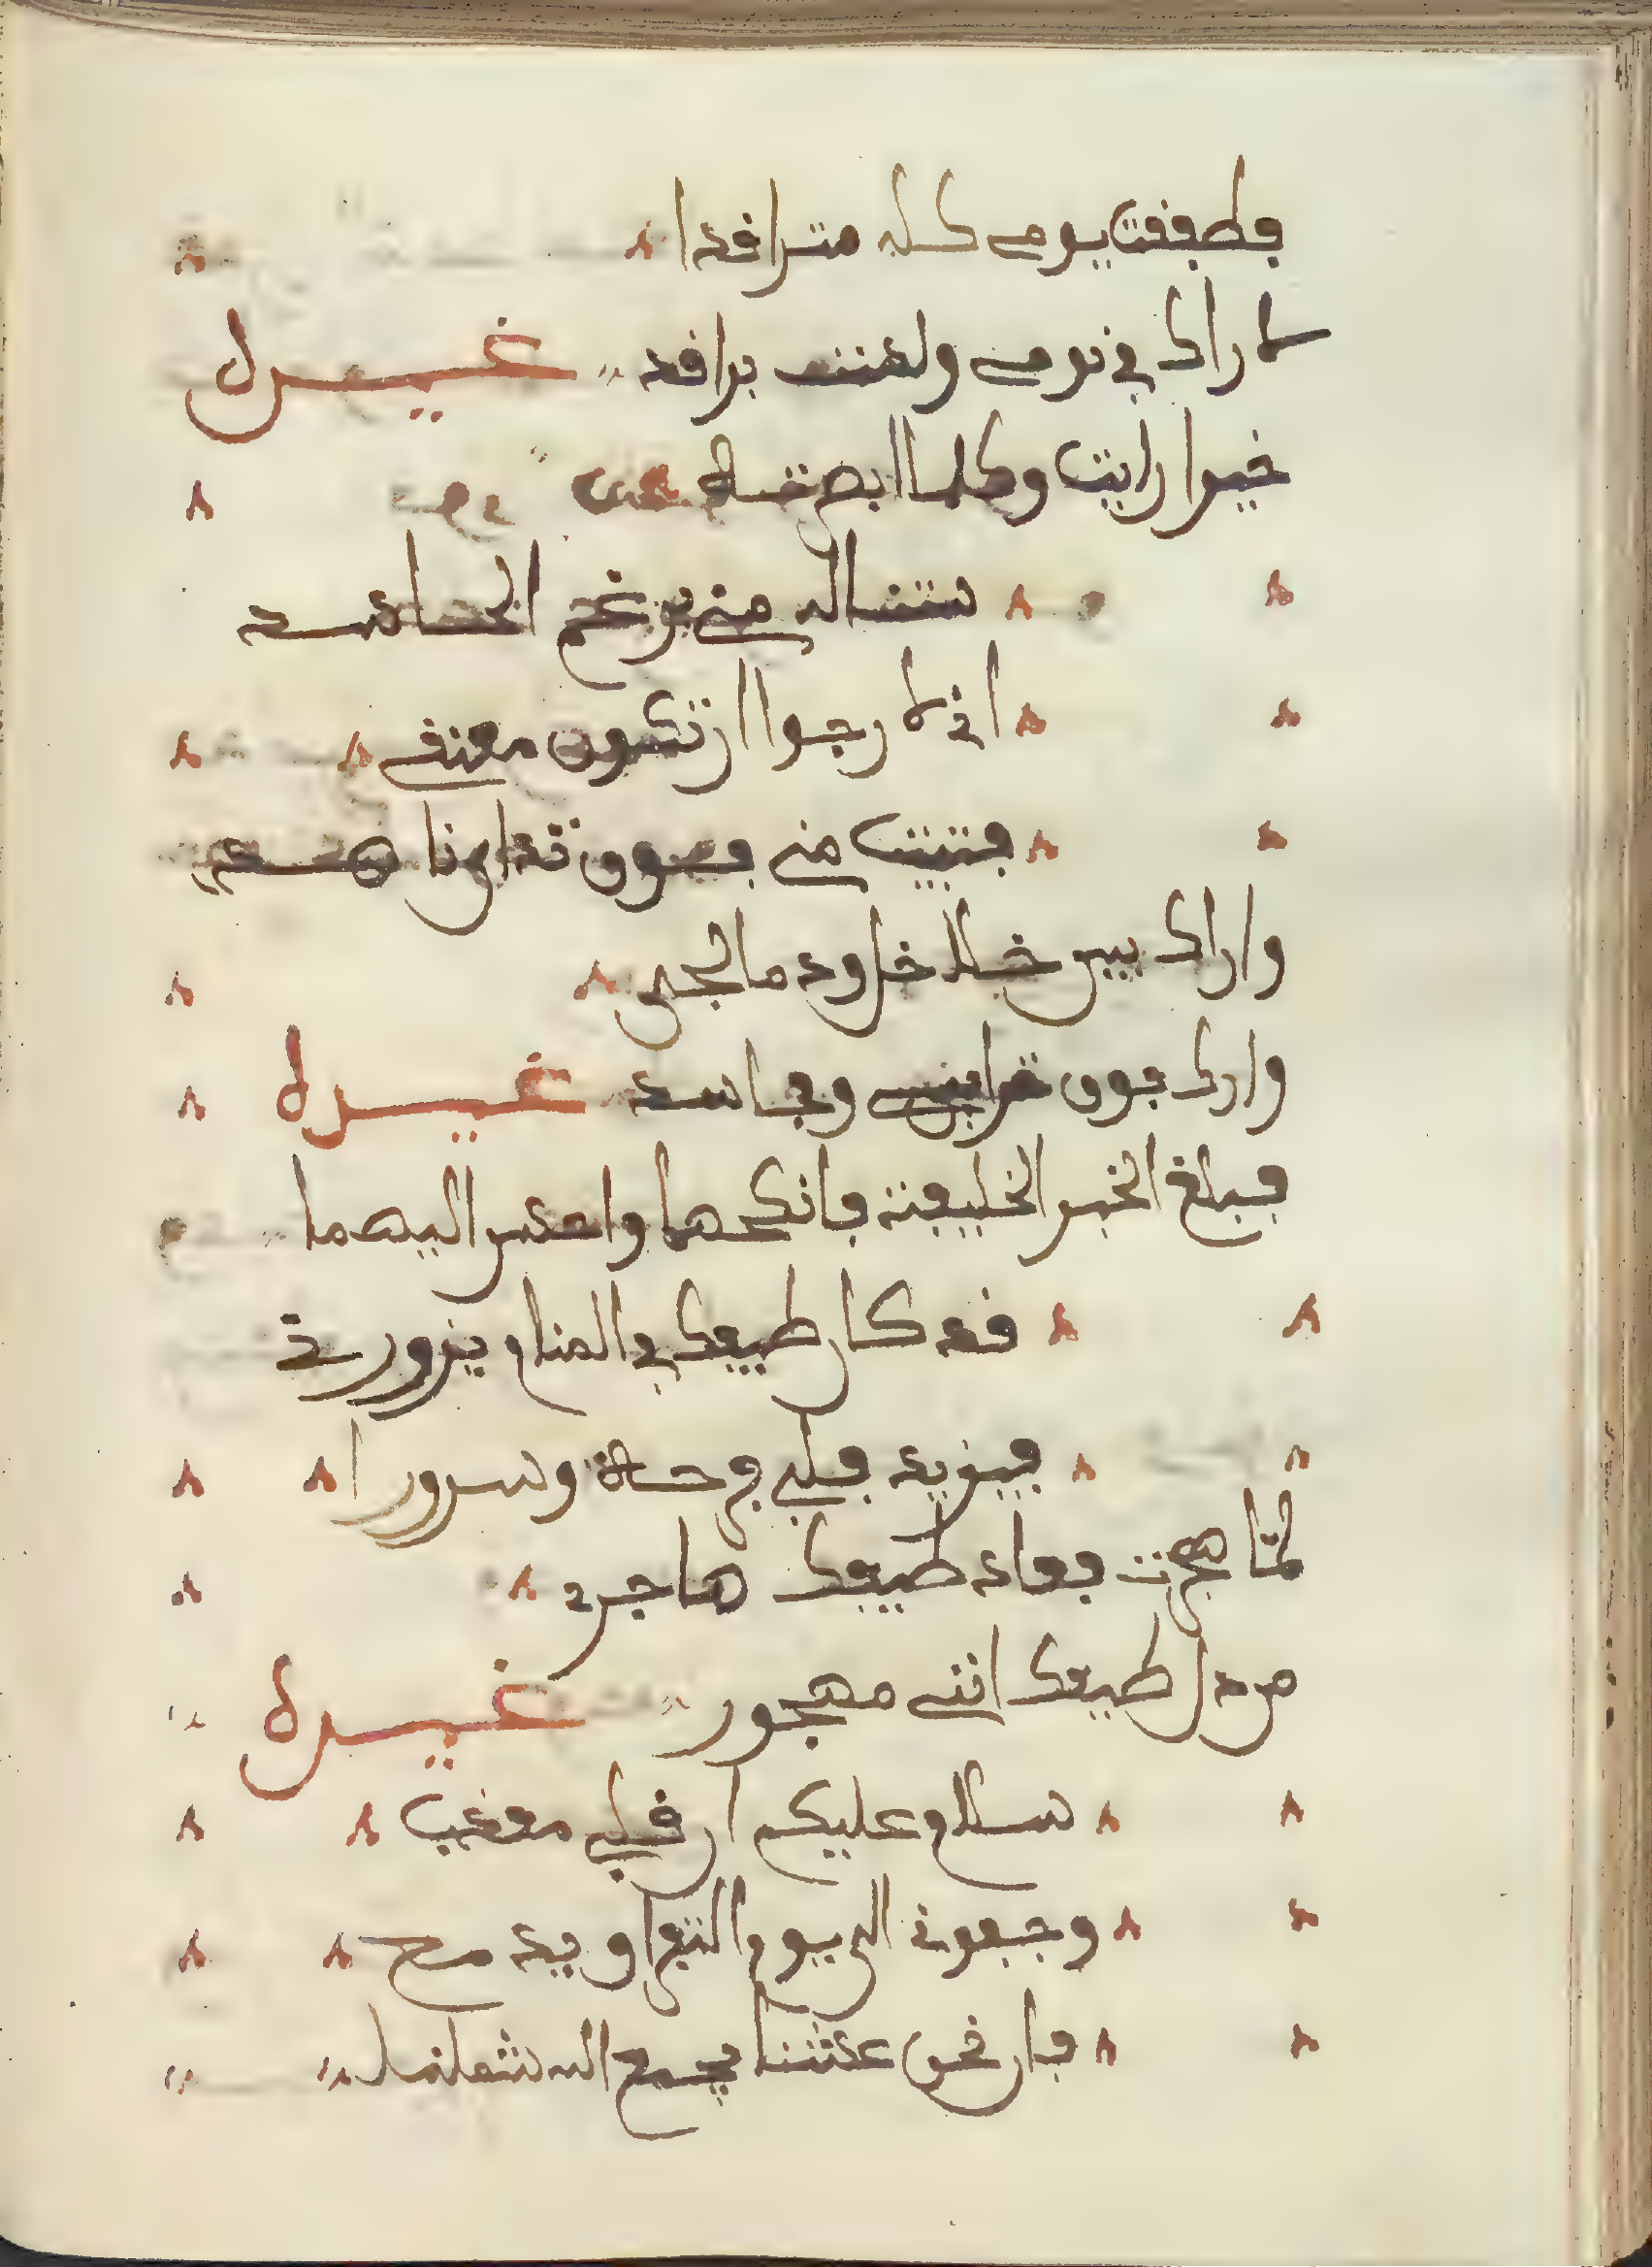 فطفقت يومي كله متراقدا
لاراك في نومي ولست براقد غيره
خيرا رايت وكلما ابصرته
ستناله مني برغم الحاسد
اني لارجوا ان تكون معنفي
فتبيت مني فوق ثدي ناهد
واراك بين خلاخلي ودمالجي
واراك فوق ترايبي ومجاسد غيره
فبلغ الخبر الخليفة فانكحهما واحسن اليهما
قد كان طيفك في المنام يزورني
فيزيد قلبي فرحة وسرورا
لما هجرت فعاد طيفك هاجري
من دل طيفك انني مهجور غيره
سلام عليكم ان قلبي معذب
وجفوني الى يوم التفراق يدمع
فان نحن عشنا يجمع الله شملنا